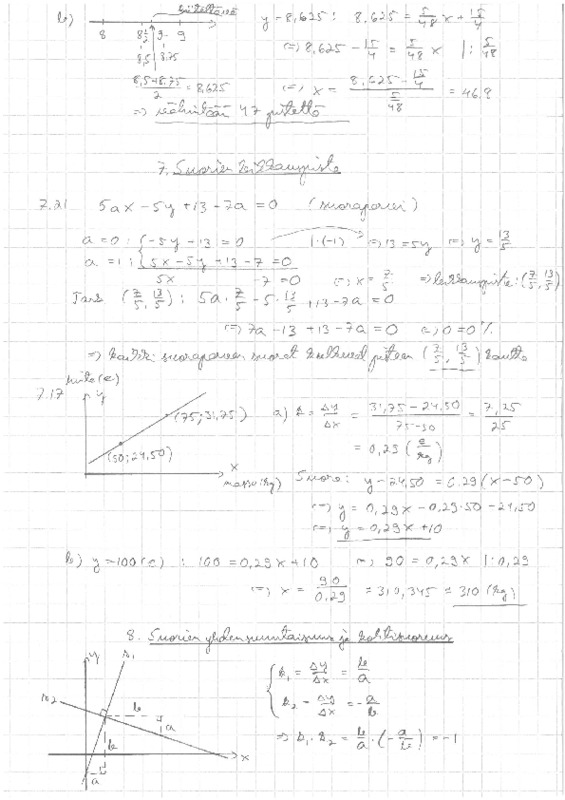 b)
8 8½ 9- 9
8,5 8,75
(8,5+8,75)/2 = 8,625
y=8,625: 8,625 = 5/48 x + 15/4
⇔ 8,625 - 15/4 = 5/48 x |: 5/48
⇔ x = (8,625 - 15/4)/(5/48) = 46,8
⇒ vähintään 47 pistettä
7. Suorien leikkauspiste
7.21 5ax - 5y + 13 - 7a = 0 (suoraparvi)
a=0: {-5y - 13 = 0 |·(-1) ⇔ 13 = 5y ⇔ y = 13/5
a=1: {5x - 5y + 13 - 7 = 0
5x - 7 = 0 ⇔ x = 7/5 ⇒ leikkauspiste: (7/5, 13/5)
(7/5, 13/5): 5a·7/5 - 5·13/5 + 13 - 7a = 0
⇔ 7a - 13 + 13 - 7a = 0 ⇔ 0 = 0 %
⇒ kaikki suoraparven suorat kulkevat pisteen (7/5, 13/5) kautta
7.17 hinta (e) y
(75;31,75)
(50;24,50)
x
massa (kg)
a) k = Δy/Δx = (31,75 - 24,50)/(75-50) = 7,25/25
= 0,29 (e/kg)
Suora: y - 24,50 = 0,29(x - 50)
⇔ y = 0,29x - 0,29·50 - 24,50
⇔ y = 0,29x + 10
b) y = 100 (e): 100 = 0,29x + 10 ⇔ 90 = 0,29x |: 0,29
⇔ x = 90/0,29 = 310,345 = 310 (kg)
8. Suorien yhdensuuntaisuus ja kohtisuoruus
y s1
s2
b
a
b
x
a
{k1 = Δy/Δx = b/a
{k2 = Δy/Δx = -a/b
⇒ k1·k2 = b/a·(-a/b) = -1